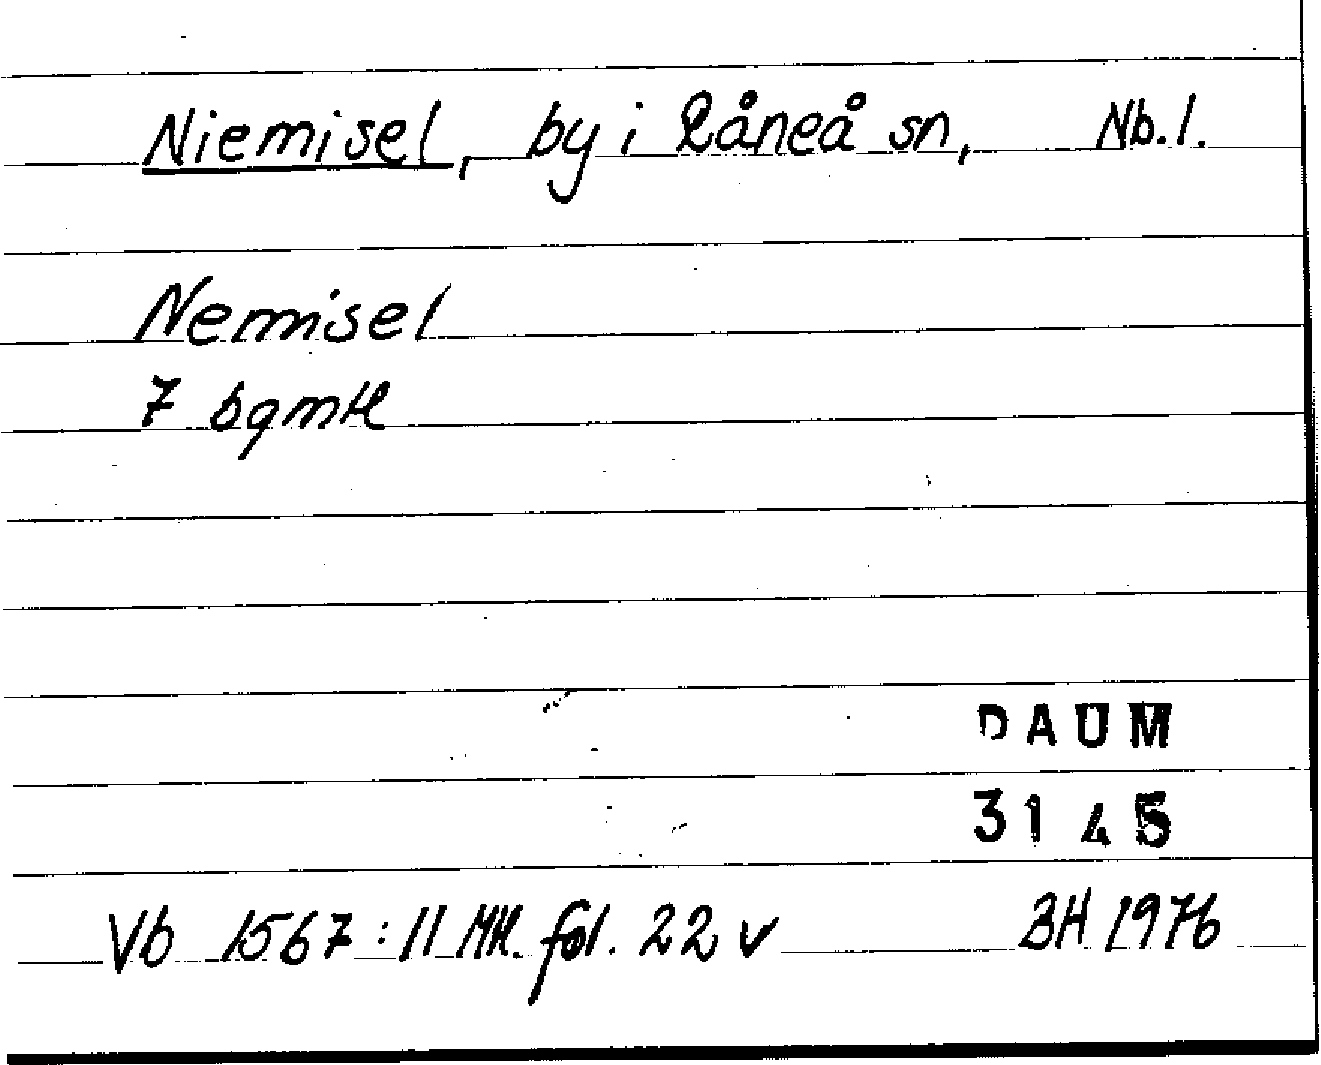 Niemisel, by i Råneå sn, Nb.l.
Nemisel
7 bqmtl
DAUM
3145
Vb 1567:11 Mtl. fol. 22 v BH 1976